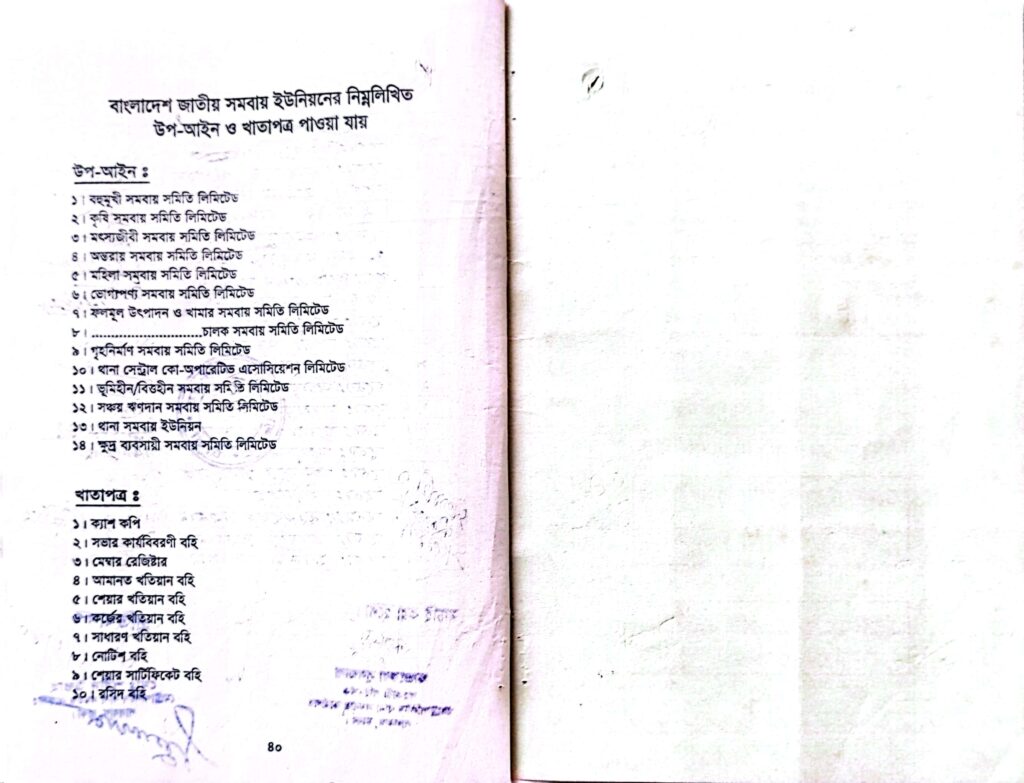 বাংলাদেশ জাতীয় সমবায় ইউনিয়নের নিম্নলিখিত
উপ-আইন ও খাতাপত্র পাওয়া যায়
উপ-আইন ঃ
১। বহুমূখী সমবায় সমিতি লিমিটেড
২। কৃষি সমবায় সমিতি লিমিটেড
৩। মৎস্যজীবী সমবায় সমিতি লিমিটেড
৪। অন্তরায় সমবায় সমিতি লিমিটেড
৫। মহিলা সমুবায় সমিতি লিমিটেড
৬। ভোগ্যপণ্য সমবায় সমিতি লিমিটেড
৭। ফলমূল উৎপাদন ও খামার সমবায় সমিতি লিমিটেড
৮। .............................চালক সমবায় সমিতি লিমিটেড
৯। গৃহনির্মাণ সমবায় সমিতি লিমিটেড
১০। থানা সেন্ট্রাল কো-অপারেটিভ এসোসিয়েশন লিমিটেড
১১। ভূমিহীন/বিত্তহীন সমবায় সমিতি লিমিটেড
১২। সঞ্চয় ঋণদান সমবায় সমিতি লিমিটেড
১৩। থানা সমবায় ইউনিয়ন
১৪। ক্ষুদ্র ব্যবসায়ী সমবায় সমিতি লিমিটেড
খাতাপত্র ঃ
১। ক্যাশ কপি
২। সভার কার্যবিবরণী বহি
৩। মেম্বার রেজিষ্টার
৪। আমানত খতিয়ান বহি
৫। শেয়ার খতিয়ান বহি
৬। কর্জের খতিয়ান বহি
৭। সাধারণ খতিয়ান বহি
৮। নোটিশ বহি
৯। শেয়ার সার্টিফিকেট বহি
১০। রসিদ বহি
৪০